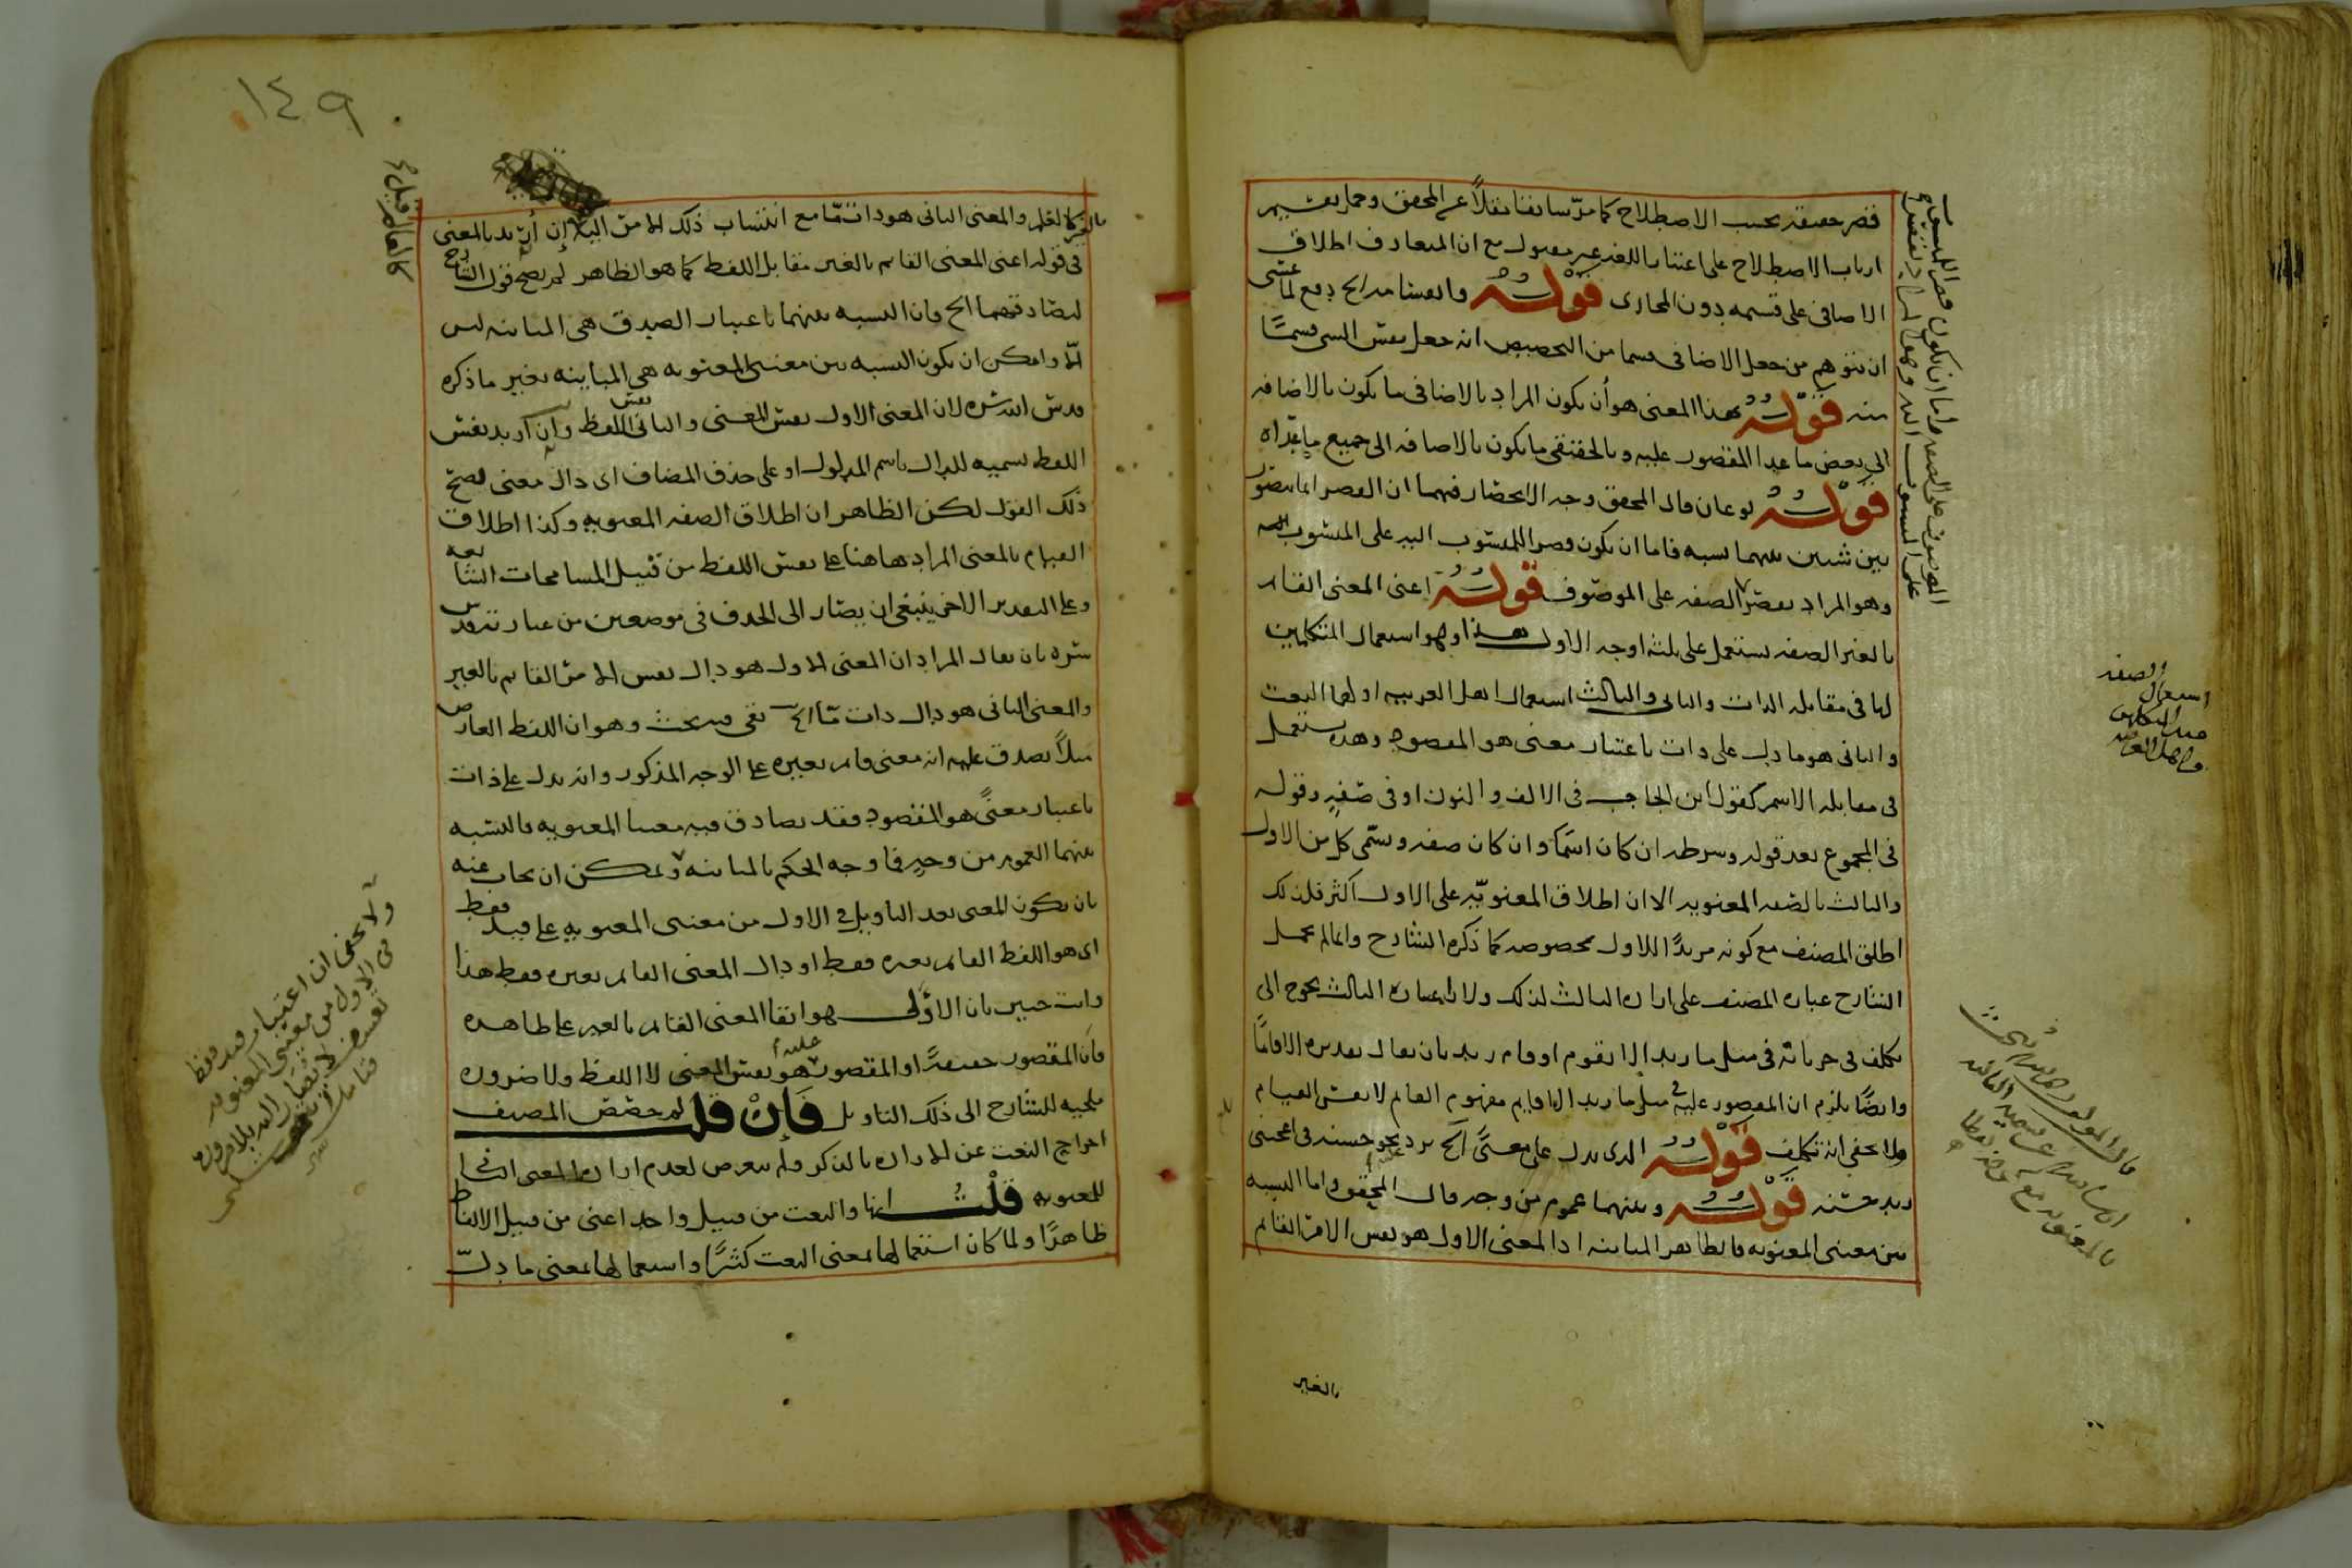 قصر حقيقة بحسب الاصطلاح كما مر سابقا نقلا عن المحقق وحمل تقسيم
ارباب الاصطلاح على اعتبار اللغة غير مقبول مع ان المتعارف اطلاق
الاضافى على قسيمه دون المجازى قوله وانقسامه الخ دفع لما عسى
ان يتوهم من جعل الاضافى قسما من التخصيص انه جعل بعض الشى قسما
منه قوله بهذا المعنى هو أن يكون المراد بالاضافى ما يكون بالاضافه
الى بعض ما عدا المقصور عليه وبالحقيقى ما يكون بالاضافه الى جميع ما عداه
قوله نوعان قال المحقق وجه الانحصار فيهما ان القصر انما يتصور
بين شيئين بينهما نسبه فاما ان يكون قصر المنسوب اليه على المنسوب
وهو المراد بقصر الصفه على الموصوف قوله اعنى المعنى القائم
بالغير الصفه تستعمل على ثلثه اوجه الاول هذا وهو استعمال المتكلمين
لها فى مقابله الذات والثانى والثالث استعمال اهل العربيه اولهما النعت
والثانى هو ما دل على ذات باعتبار معنى هو المقصود وهذه تستعمل
فى مقابله الاسم كقول ابن الحاجب فى الالف والنون او فى صفه وقوله
فى المجموع بعد قوله وشرطه ان كان اسما وان كان صفه ويسمى كل من الاول
والثالث بالصفه المعنويه الا ان اطلاق المعنويه على الاول اكثر فلذلك
اطلق المصنف مع كونه مريدا للاول بخصوصه كما ذكره الشارح وانما لم يحمل
الشارح عباره المصنف على اراده الثالث لذلك ولان اعتباره الثالث يحوج الى
تكلف فى جريانه فى مثل ما زيد الا يقوم او قام زيد بان يقال تقديره الا قائما
وايضا يلزم ان المقصور عليه فى مثل ما زيد الا قائم مفهوم القائم لا نفس القيام
ولا يخفى انه تكلف قوله الذى يدل على معنى الخ يرد نحو حسنه فى اعجبنى
زيد حسنه قوله وبينهما عموم من وجه قال المحقق واما النسبه
بين معنيى المعنويه فالظاهر المباينه اذ المعنى الاول هو نفس الامر القائم
بالغير
استعمال الصفه
عند المتكلمين
واهل العربيه
١٤٩
بالغير كالعلم والمعنى الثانى هو ذات ما مع انتساب ذلك الامر اليه إن أريد بالمعنى
فى قوله اعنى المعنى القائم بالغير مقابل اللفظ كما هو الظاهر لم يصح قول الشارح
لتصادقهما الخ فان النسبه بينهما باعتبار الصدق هى المباينه ليس
الا وامكن ان يكون النسبه بين معنيى المعنويه هى المباينه بغير ما ذكره
قدس الله سره لان المعنى الاول نفس المعنى والثانى نفس اللفظ وان اريد نفس
اللفظ تسميه للدال باسم المدلول او على حذف المضاف اى دال معنى فصح
ذلك القول لكن الظاهر ان اطلاق الصفه المعنويه وكذا اطلاق
القيام بالمعنى المراد هاهنا على نفس اللفظ من قبيل المسامحات الشائعه
وعلى التقدير الاخر ينبغى ان يصار الى الحذف فى موضعين من عبارته قدس
سره بان يقال المراد ان المعنى الاول هو دال نفس الامر القائم بالغير
والمعنى الثانى هو دال ذات ما الخ بقى فيه بحث وهو ان اللفظ العارض
مثلا يصدق عليه انه معنى قائم بغيره على الوجه المذكور وانه يدل على ذات
باعتبار معنى هو المقصود فقد تصادق فيه معنيا المعنويه فالنسبه
بينهما العموم من وجه فما وجه الحكم بالمباينه ويمكن ان يجاب عنه
بان يكون المعنى بعد التاويل فى الاول من معنيى المعنويه على قيد فقط
اى هو اللفظ القائم بغيره فقط او دال المعنى القائم بغيره فقط هذا
وانت خبير بان الاولى هو ابقا المعنى القائم بالغير على ظاهره
فان المقصور حقيقة او المقصور عليه هو نفس المعنى لا اللفظ ولا ضروره
ملجيه للشارح الى ذلك التاويل فان قلت لم خصص المصنف
اخراج النعت عن الاراده بالذكر ولم يتعرض لعدم اراده المعنى الثالث
للمعنويه قلت انها والنعت من قبيل واحد اعنى من قبيل الالفاظ
ظاهرا ولما كان استعمالها بمعنى النعت كثيرا واستعمالها بمعنى ما دل
ولا يخفى ان اعتبار قيد فقط
فى الاول من معنيى المعنويه
تعسف لا يصار اليه بلا ضروره